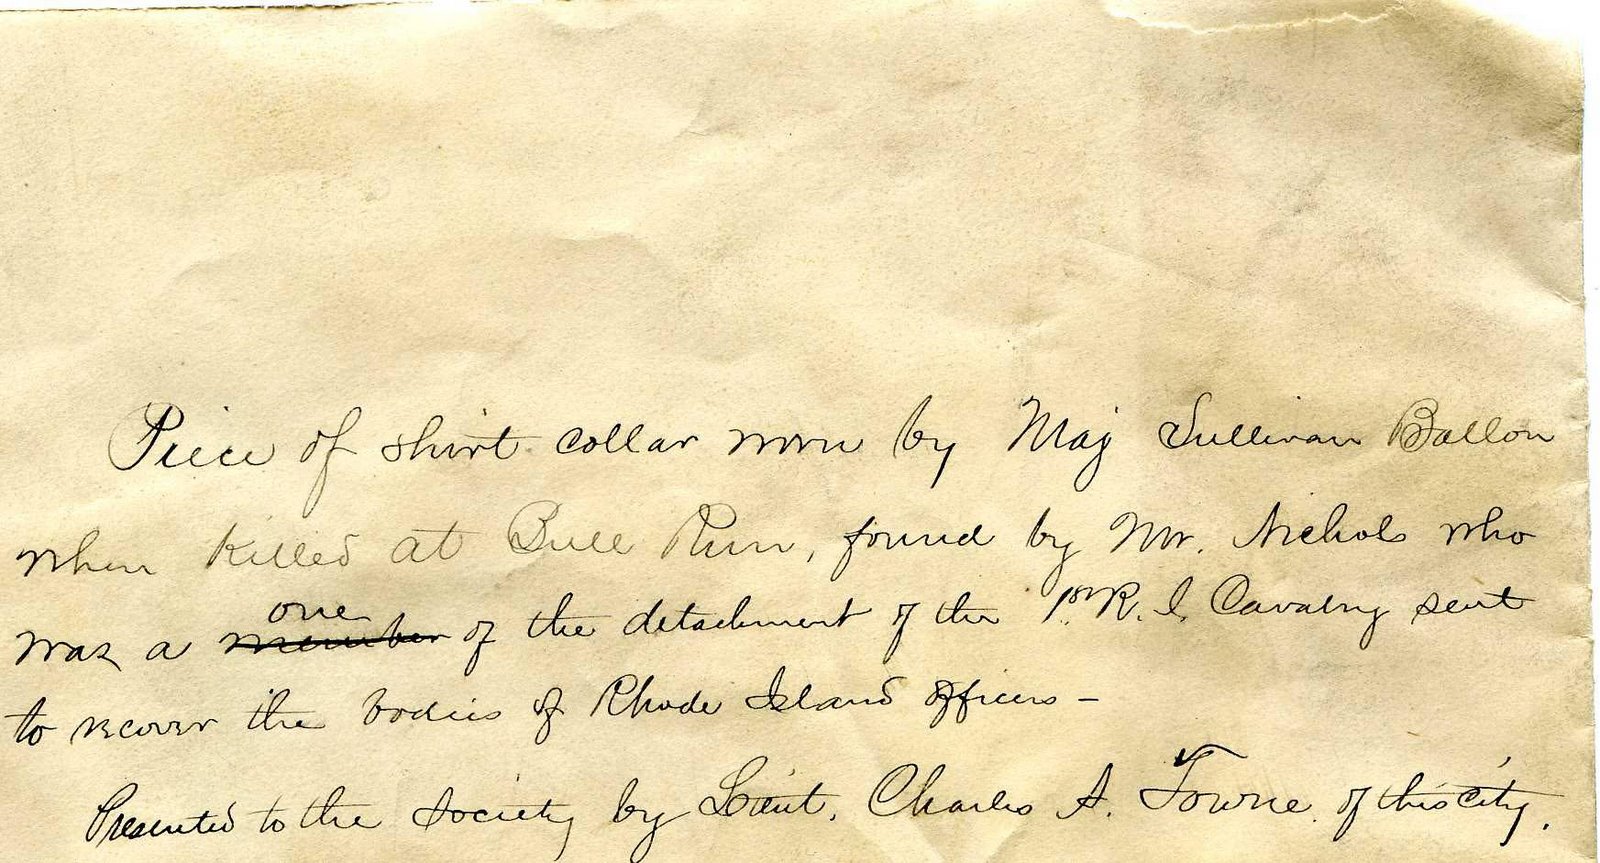 Piece of shirt collar worn by Maj Sullivan Ballou
when killed at Bull Run, found by Mr. Nichols who
was a ~~member~~ one of the detachment of the 1st R. I. Cavalry sent
to recover the bodies of Rhode Island officers –
Presented to the Society by Lieut. Charles A. Towne. of this city.